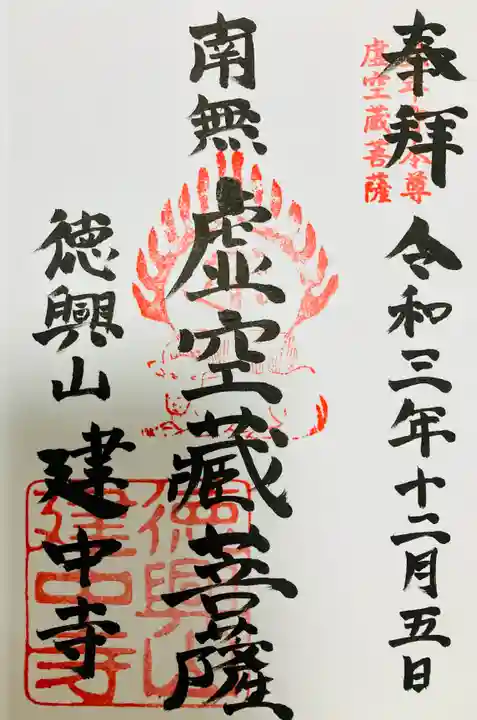 奉拝
本尊
虚空蔵菩薩
令和三年十二月五日
南無虚空蔵菩薩
徳興山
建中寺
徳興山
建中寺